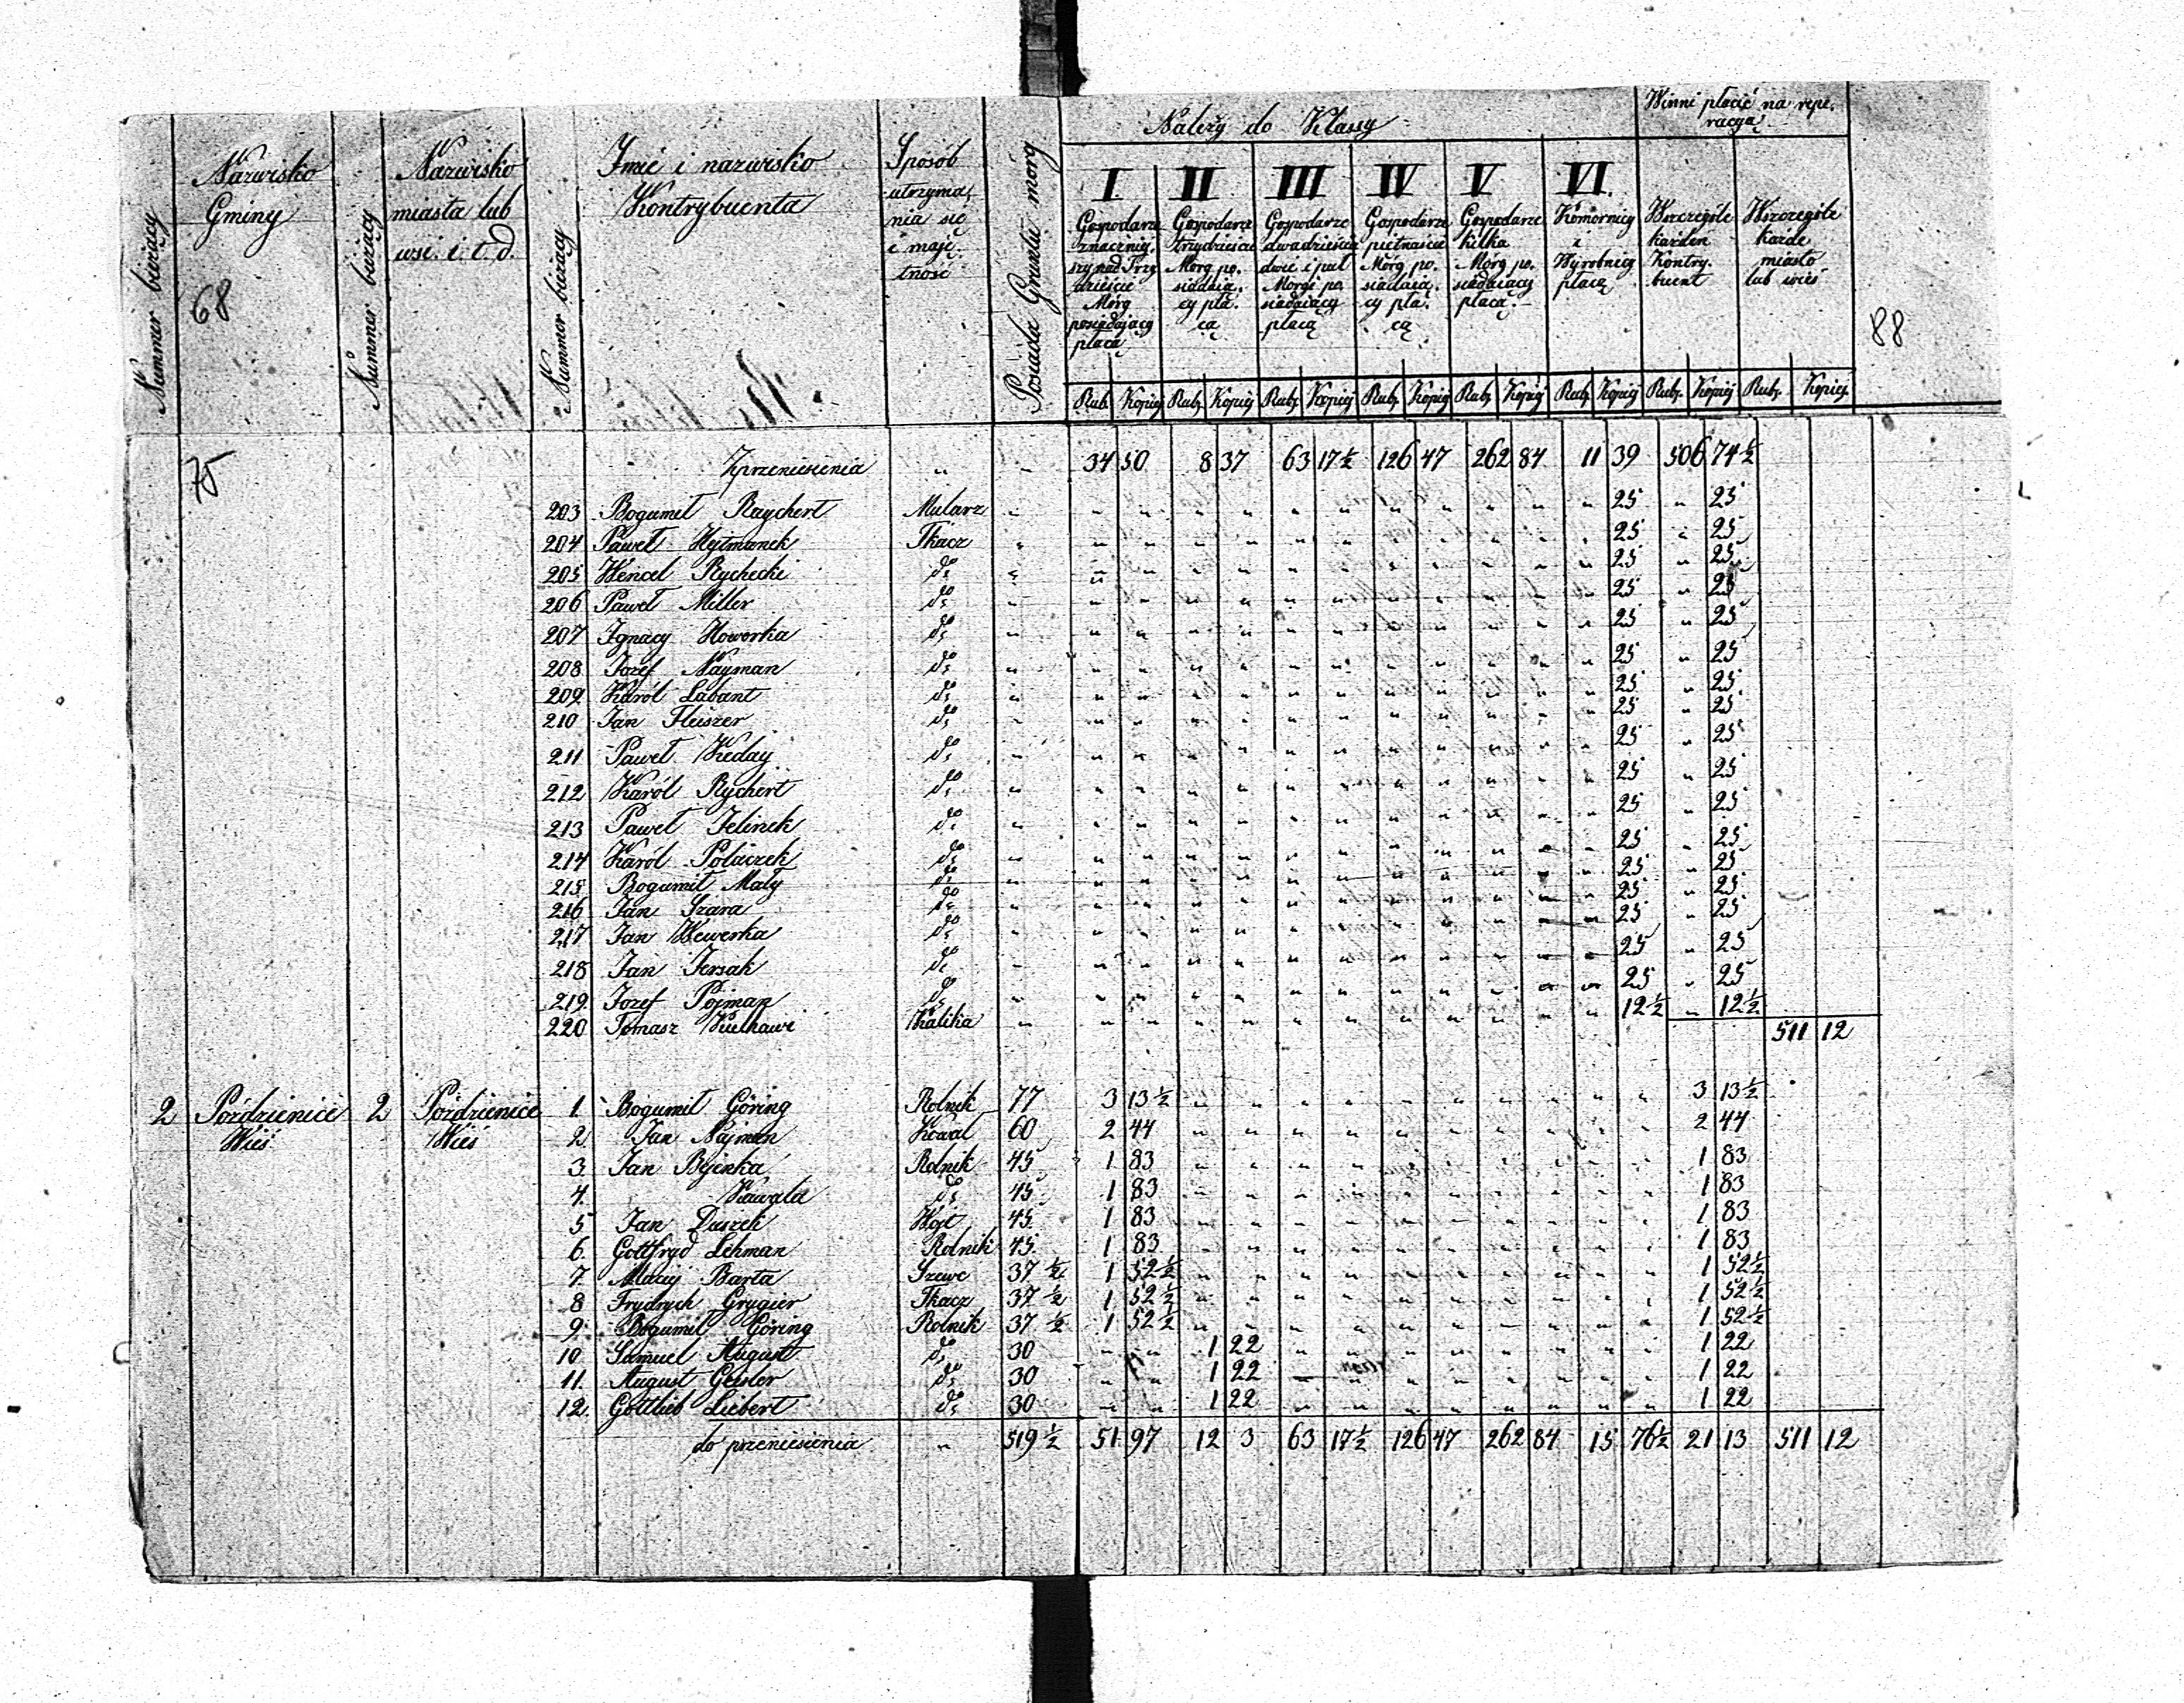 Należy do Klassy
Winni płacić na repe-
racyą
Nummer bieżący
Nazwisko
Gminy
68
Nummer bieżący
Nazwisko
miasta lub
wsi. i. t. d.
Nummer bieżący
Imie i nazwisko
Kontrybuenta
Sposób
utrzyma-
nia się
i maję-
tność
Posiada Gruntu morg
I
Gospodarze
znaczniej-
szy nad Trzy
dzieście
Mórg
posiadający
płacą
II
Gospodarze
trzydzieście
Mórg po-
siadaią-
cy pła-
cą
III
Gospodarze
dwadzieście
dwie i puł
Morgi po
siadaiący
płacą
IV
Gospodarze
pietnaście
Mórg po-
siadaią-
cy pła-
cą
V
Gospodarze
kilka
Mórg po-
siadaiący
płacą
VI.
Komornicy
i
Wyrobnicy
płacą
Wszczególe
każden
Kontry-
buent
Wszczególe
każde
miasto
lub wieś
88
Rub. Kopiej Rub. Kopiej Rub. Kopiej Rub. Kopiej Rub. Kopiej Rub. Kopiej Rub. Kopiej Rub. Kopiej
75
Zprzeniesienia " " 34 50 8 37 63 17½ 126 47 262 84 11 39 506 74½
203 Bogumił Raychert Mularz 25 " 25
204 Paweł Hejtmanek Tkacz 25 " 25
205 Wencel Rychecki do 25 " 25
206 Paweł Miller do 25 " 25
207 Ignacy Howorka do 25 " 25
208 Jozef Nayman do 25 " 25
209 Karól Labant do 25 " 25
210 Jan Fleiszer do 25 " 25
211 Paweł Keday do 25 " 25
212 Karól Rychert do 25 " 25
213 Paweł Jelinek do 25 " 25
214 Karól Polaczek do 25 " 25
215 Bogumił Mały do 25 " 25
216 Jan Szara do 25 " 25
217 Jan Wewerka do 25 " 25
218 Jan Jersak do 25 " 25
219 Jozef Pojman do 25 " 25
220 Tomasz Kulhawi Kalika 12½ " 12½
511 12
2 Pozdzienice 2 Pozdzienice 1. Bogumił Göring Rolnik 77 3 13½ 3 13½
Wieś Wieś 2. Jan Najman Kowal 60 2 44 2 44
3. Jan Byinka Rolnik 45 1 83 1 83
4. Kawala do 45 1 83 1 83
5 Jan Duszek Wójt 45 1 83 1 83
6. Gottfryd Lehman Rolnik 45 1 83 1 83
7. Maciej Barta Szewc 37½ 1 52½ 1 52½
8 Frydrych Grygier Tkacz 37½ 1 52½ 1 52½
9. Bogumił Göring Rolnik 37½ 1 52½ 1 52½
10 Samuel August do 30 1 22 1 22
11. August Geisler do 30 1 22 1 22
12. Gottlieb Liebert do 30 1 22 1 22
do przeniesienia " 519½ 51 97 12 3 63 17½ 126 47 262 84 15 76½ 21 13 511 12